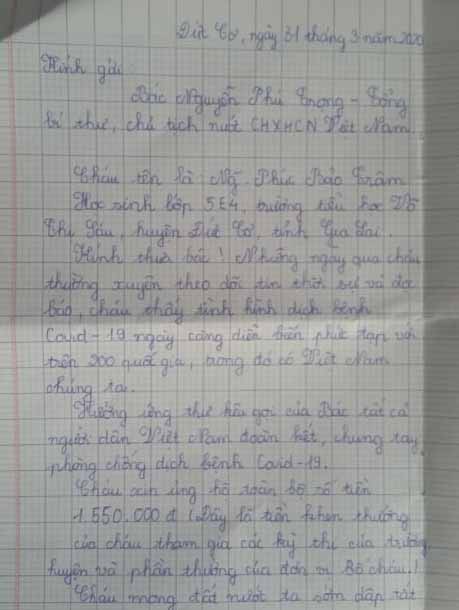 Đức Cơ, ngày 31 tháng 3 năm 2020
Kính gửi
Bác Nguyễn Phú Trọng - Tổng
bí thư, chủ tịch nước CHXHCN Việt Nam.
Cháu tên là Ngô Phúc Bảo Trâm
Học sinh lớp 5E4, trường tiểu học Võ
Thị Sáu, huyện Đức Cơ, tỉnh Gia Lai.
Kính thưa bác! Những ngày qua cháu
thường xuyên theo dõi tin thời sự và đọc
báo, cháu thấy tình hình dịch bệnh
Covid-19 ngày càng diễn biến phức tạp với
trên 200 quốc gia, trong đó có Việt Nam
chúng ta.
Hưởng ứng thư kêu gọi của Bác tất cả
người dân Việt Nam đoàn kết, chung tay
phòng chống dịch bệnh Covid-19.
Cháu xin ủng hộ toàn bộ số tiền
1.550.000 đ (Đây là tiền khen thưởng
của cháu tham gia các kỳ thi của trường
huyện và phần thưởng của đơn vị Bố cháu.)
Cháu mong đất nước ta sớm dập tắt